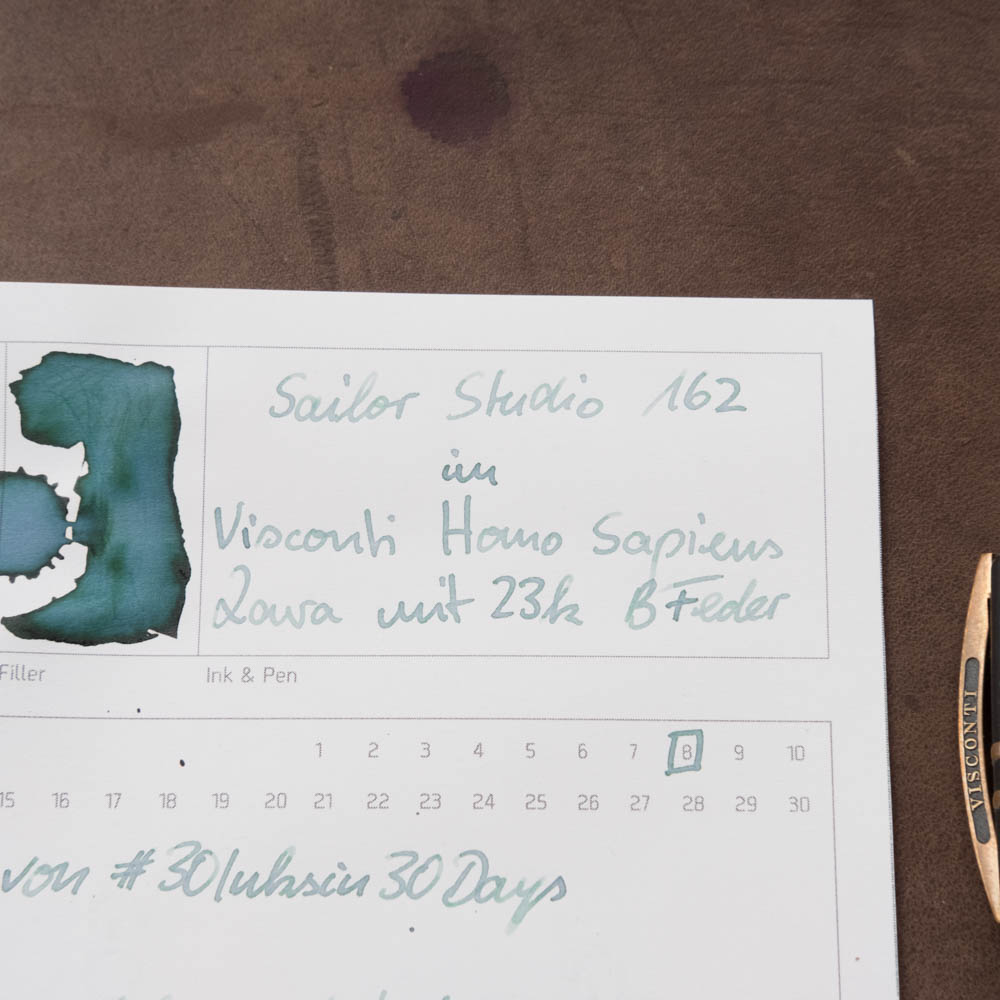 Sailor Studio 162
im
Visconti Homo Sapiens
Lava mit 23k B Feder
Filler
Ink & Pen
1 2 3 4 5 6 7 8 9 10
15 16 17 18 19 20 21 22 23 24 25 26 27 28 29 30
von #30Inksin30Days
VISCONTI